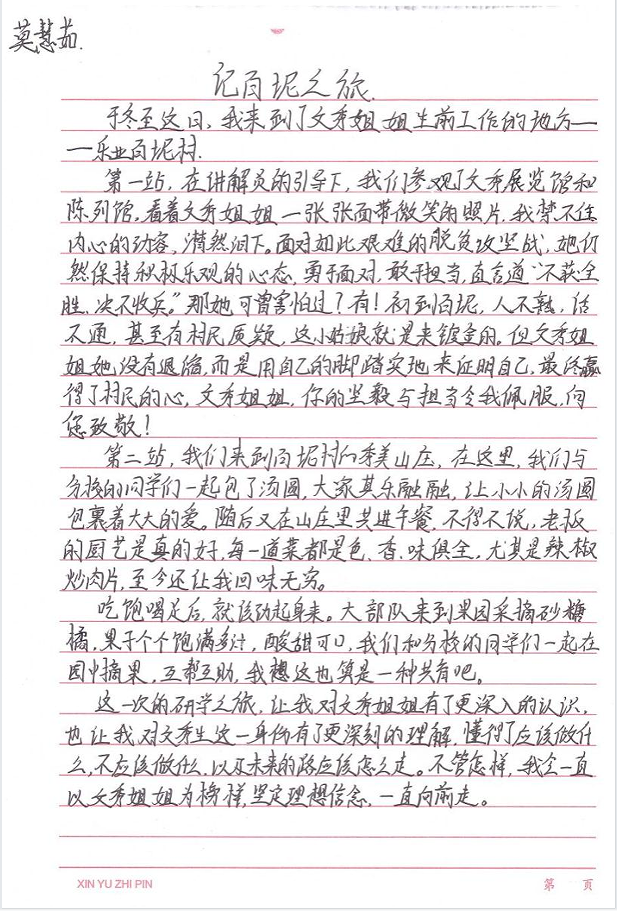 莫慧茹.
记百坭之旅.
于冬至这日,我来到了文秀姐姐生前工作的地方—
—乐业百坭村.
第一站,在讲解员的引导下,我们参观了文秀展览馆和
陈列馆,看着文秀姐姐一张张面带微笑的照片,我禁不住
内心的动容,潸然泪下。面对如此艰难的脱贫攻坚战,她仍
然保持积极乐观的心态,勇于面对,敢于担当,直言道“不获全
胜,决不收兵。”那她可曾害怕过?有!初到百坭,人不熟,话
不通,甚至有村民质疑,这小姑娘就是来镀金的。但文秀姐
姐她没有退缩,而是用自己的脚踏实地来证明自己,最终赢
得了村民的心,文秀姐姐,你的坚毅与担当令我佩服,向
您致敬!
第二站,我们来到百坭村的秀美山庄,在这里,我们与
分校的同学们一起包了汤圆,大家其乐融融,让小小的汤圆
包裹着大大的爱。随后又在山庄里共进午餐,不得不说,老板
的厨艺是真的好,每一道菜都是色、香、味俱全,尤其是辣椒
炒肉片,至今还让我回味无穷。
吃饱喝足后,就该动起身来。大部队来到果园采摘砂糖
橘,果子个个饱满多汁,酸甜可口,我们和分校的同学们一起在
园中摘果,互帮互助,我想这也算是一种共育吧。
这一次的研学之旅,让我对文秀姐姐有了更深入的认识,
也让我对文秀生这一身份有了更深刻的理解,懂得了应该做什
么,不应该做什么,以及未来的路应该怎么走。不管怎样,我会一直
以文秀姐姐为榜样,坚定理想信念,一直向前走。
XIN YU ZHI PIN
第 页